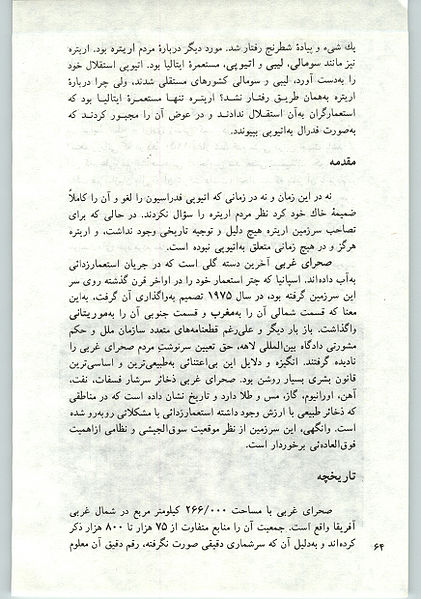 یك شیء و پیادهٔ شطرنج رفتار شد. مورد دیگر دربارهٔ مردم اریتره بود. اریتره
نیز مانند سومالی، لیبی و اتیوپی، مستعمرهٔ ایتالیا بود. اتیوپی استقلال خود
را به‌دست آورد، لیبی و سومالی کشورهای مستقلی شدند، ولی چرا دربارهٔ
اریتره به‌همان طریق رفتار نشد؟ اریتره تنها مستعمرهٔ ایتالیا بود که
استعمارگران به‌آن استقلال ندادند و در عوض آن را مجبور کردند که
به‌صورت فدرال به‌اتیوپی بپیوندد.
مقدمه
نه در این زمان و نه در زمانی که اتیوپی فدراسیون را لغو و آن را کاملاً
ضمیمهٔ خاك خود کرد نظر مردم اریتره را سؤال نکردند. در حالی که برای
تصاحب سرزمین اریتره هیچ دلیل و توجیه تاریخی وجود نداشت، و اریتره
هرگز و در هیچ زمانی متعلق به‌اتیوپی نبوده است.
صحرای غربی آخرین دسته گلی است که در جریان استعمارزدائی
به‌آب داده‌اند. اسپانیا که چتر استعمار خود را در اواخر قرن گذشته روی سر
این سرزمین گرفته بود، در سال ۱۹۷۵ تصمیم به‌واگذاری آن گرفت، به‌این
معنا که قسمت شمالی آن را به‌مغرب و قسمت جنوبی آن را به‌موریتانی
واگذاشت. باز بار دیگر و علی‌رغم قطعنامه‌های متعدد سازمان ملل و حکم
مشورتی دادگاه بین‌المللی لاهه، حق تعیین سرنوشت مردم صحرای غربی را
نادیده گرفتند. انگیزه و دلایل این بی‌اعتنائی به‌طبیعی‌ترین و اساسی‌ترین
قانون بشری بسیار روشن بود. صحرای غربی ذخائر سرشار فسفات، نفت،
آهن، اورانیوم، گاز، مس و طلا دارد و تاریخ نشان داده است که در مناطقی
که ذخائر طبیعی با ارزش وجود داشته استعمارزدائی با مشکلاتی روبه‌رو شده
است. وانگهی، این سرزمین از نظر موقعیت سوق‌الجیشی و نظامی ازاهمیت
فوق‌العاده‌ئی برخوردار است.
تاریخچه
صحرای غربی با مساحت ۲۶۶/۰۰۰ کیلومتر مربع در شمال غربی
آفریقا واقع است. جمعیت آن را منابع متفاوت از ۷۵ هزار تا ۸۰۰ هزار ذکر
کرده‌اند و به‌دلیل آن که سرشماری دقیقی صورت نگرفته، رقم دقیق آن معلوم
۶۴